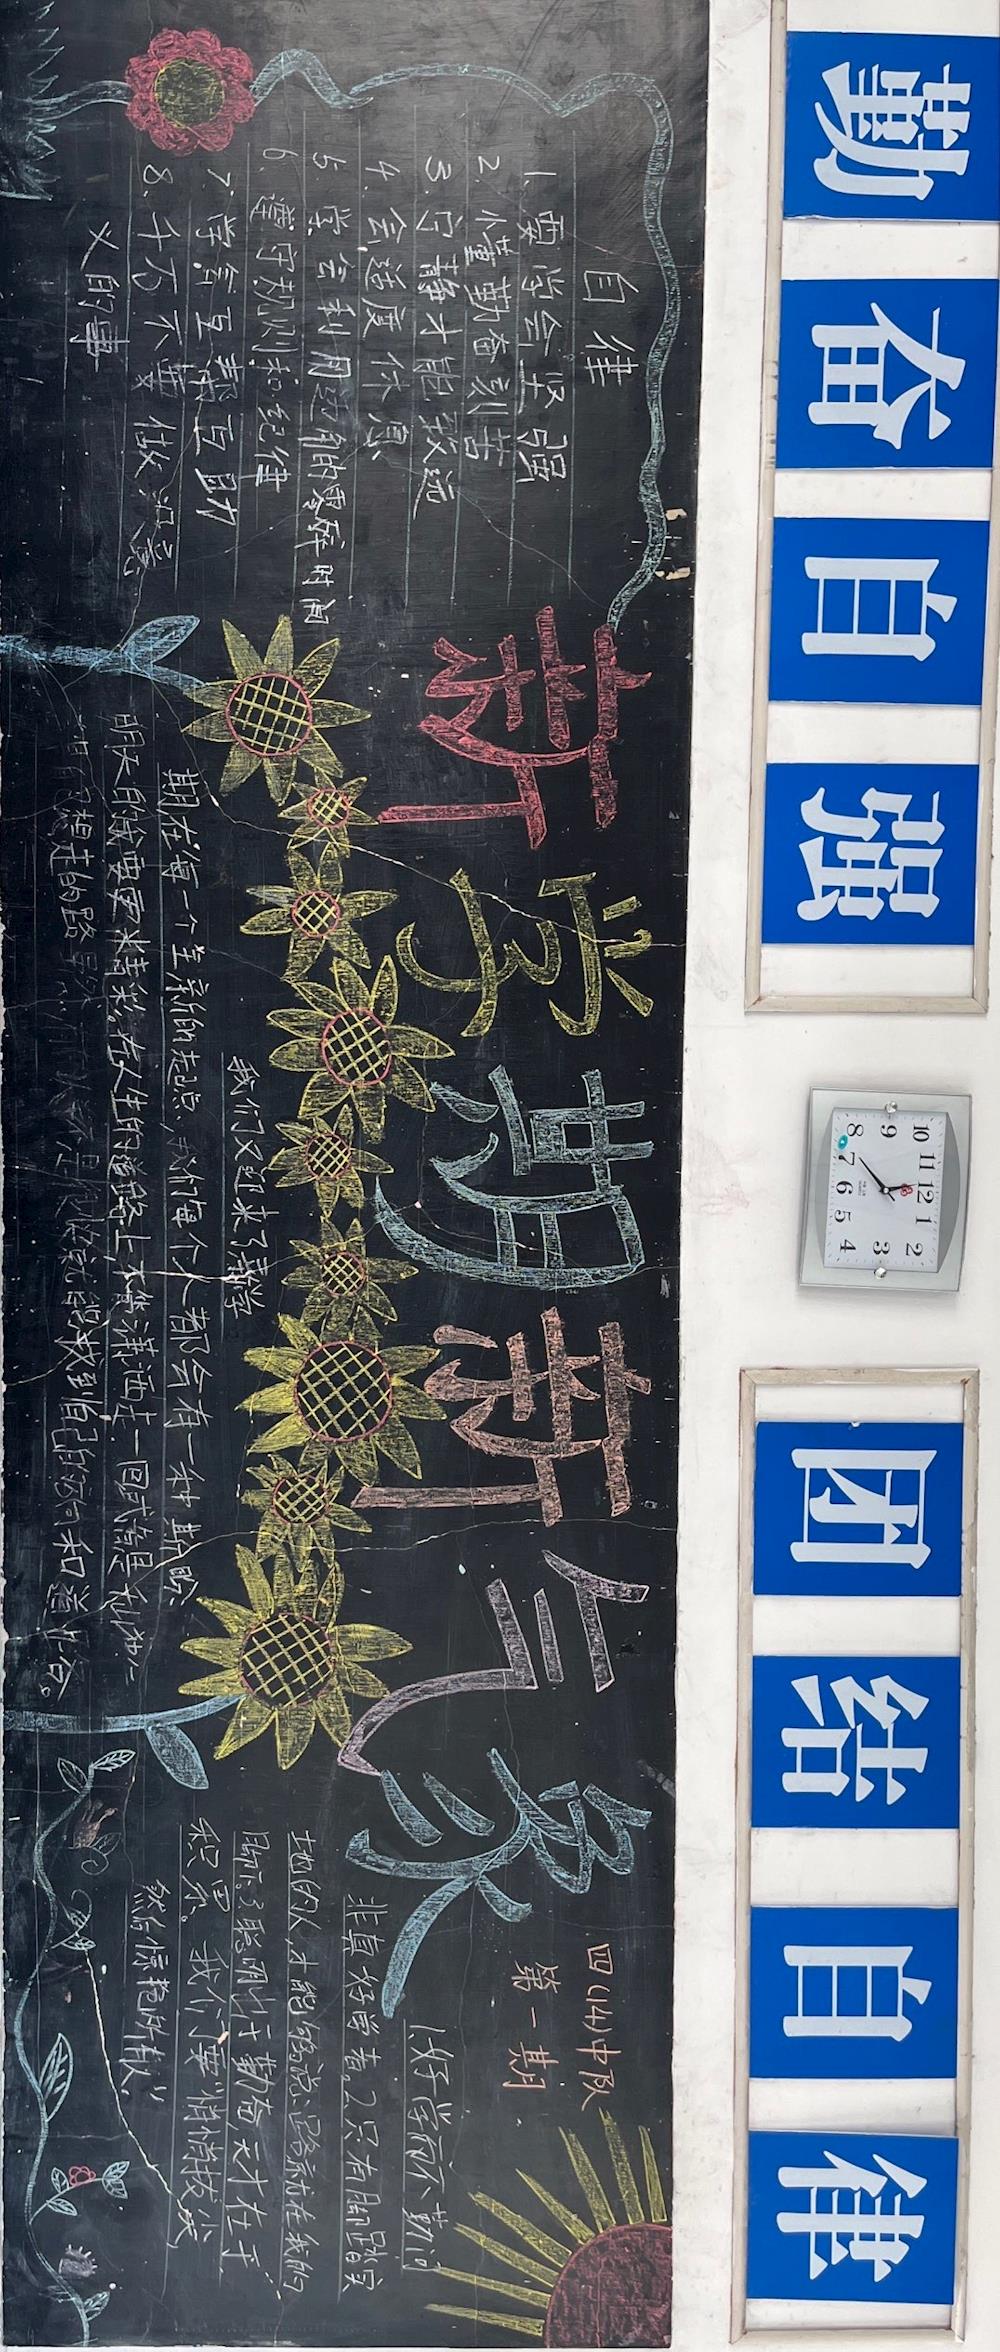 勤奋自强
团结自律
10 11 12 1 2 3 4 5 6 7 8 9
新学期新气象
自律
1. 要学会坚强
2. 小董勤奋刻苦
3. 宁静才能致远
4. 会适度休息
5. 学会利用边角的零碎时间
6. 遵守规则和纪律
7. 学会互帮互助
8. 千万不要做没意
义的事
我们又迎来了新学
期在每一个崭新的起点,我们每个人都会有一种期盼
明天的我要更精彩。在人生的道路上
想走的路
就能找到自己的方向和
四(14)中队
第一期
1.好学而不勤问
非真好学者。2.只有脚踏实
地的人,才能够说:路就在我的
脚下。3.聪明出于勤奋,天才在于
积累。我们要悄悄拔尖
然后惊艳所有人